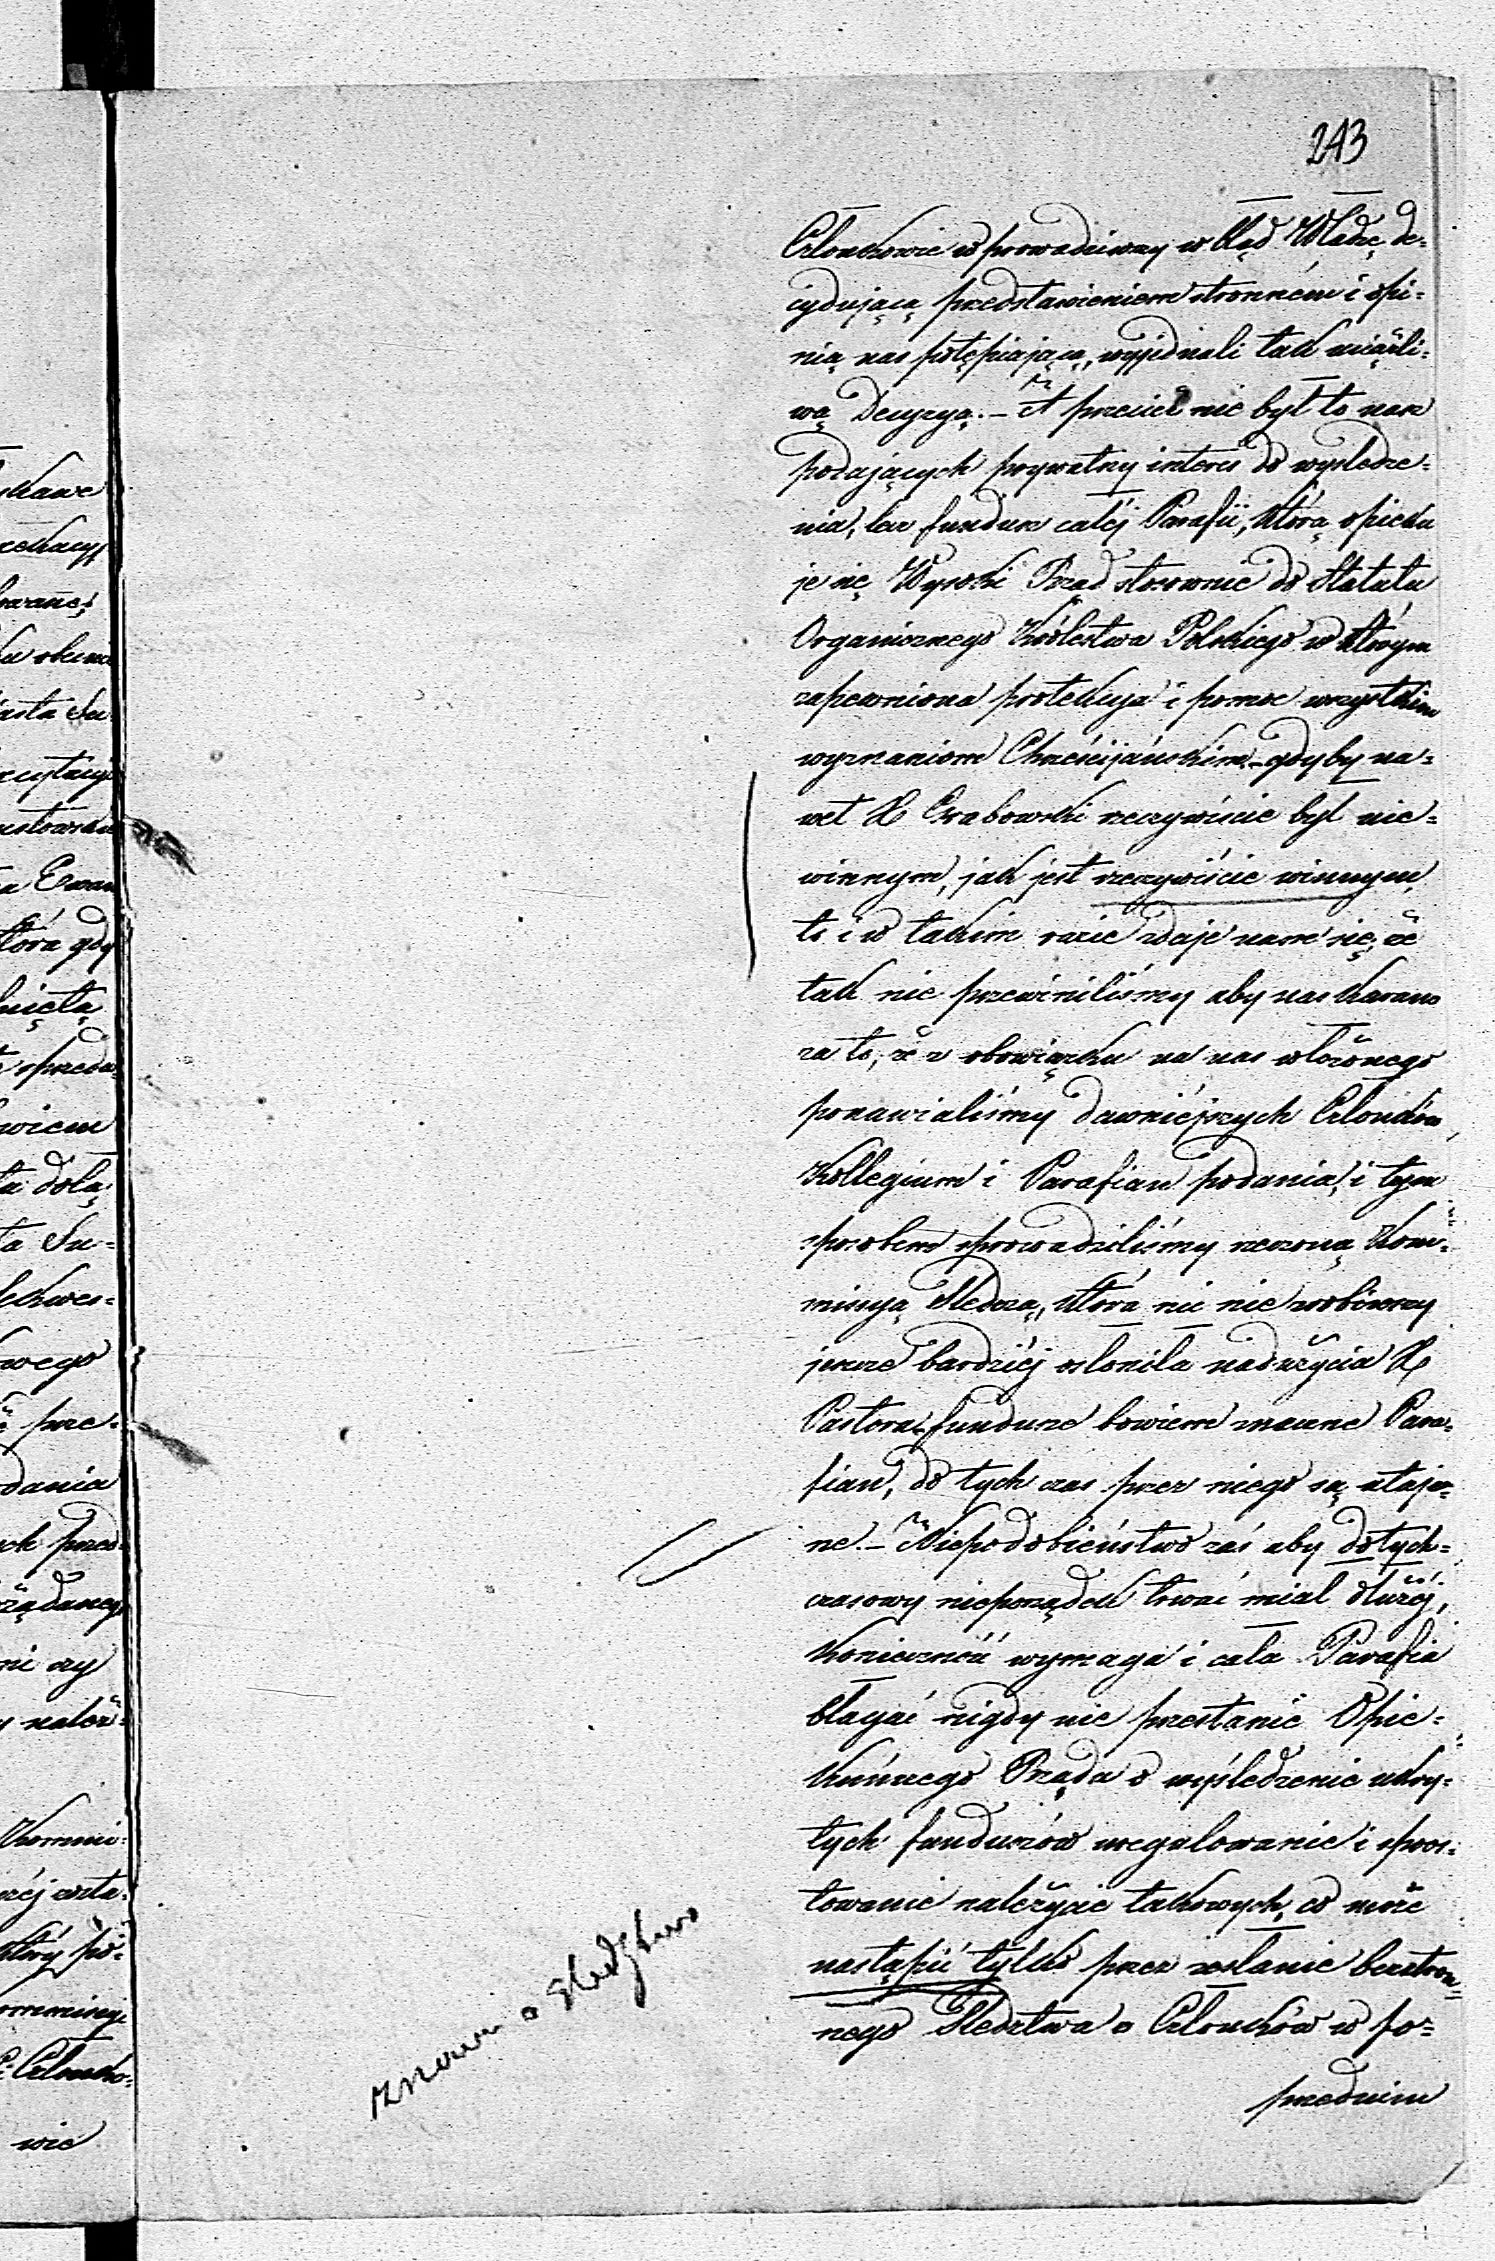 243
Członkowie wprowadziwszy w błąd Władzę de-
cydującą przedstawieniem stronném i opi-
nią nas potępiającą, wyjednali tak uciążli-
wą Decyzyą. – A przecież nie był to nas
podających prywatny interes do wyśledze-
nia, lecz fundusz całéj Parafii, którą opieku
je się Wysoki Rząd stosownie do Statutu
Organicznego Królestwa Polskiego w którym
zapewniona protekcyja i pomoc wszystkim
wyznaniom Chrześcijańskim – gdyby na-
wet X Grabowski rzeczywiście był nie-
winnym, jak jest rzeczywiście winnym,
to i w takim razie zdaje nam się, że
tak nie przewiniliśmy aby nas karano
za to, że z obowiązku na nas włożonego
ponawialiśmy dawniéjszych Członków
Kollegium i Parafian podania, i tym
sposobem sprowadziliśmy rzeczoną Kom-
missyą Śledczą, która nic nie zrobiwszy
jeszcze bardziéj osłoniła nadużycia X
Pastora – fundusze bowiem znaczne Para-
fian, do tych czas przez niego są utajo-
ne. – Niepodobieństwo zaś aby dotych-
czasowy nieporządek trwać miał dłużéj,
konieczność wymaga i cała Parafia
błagać nigdy nie przestanie Opie-
kuńczego Rządu o wyśledzenie ukry-
tych funduszów uregulowanie i spros-
towanie należycie takowych, co może
nastąpić tylko przez zesłanie bezstron-
nego Śledztwa o Członków w po-
przednim
znowu o śledztwo